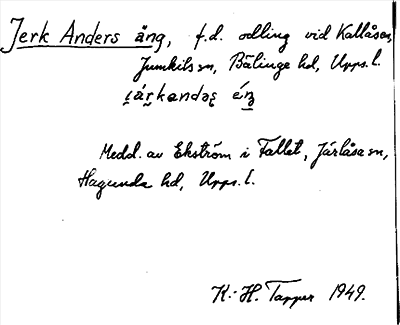 Jerk Anders äng, f.d. odling vid Kallåsen,
Jumkils sn, Bälinge hd, Upps. l.
Medd. av Ekström i Fallet, Järlåsa sn,
Hagunda hd, Upps. l.
K.-H. Tapper 1949.